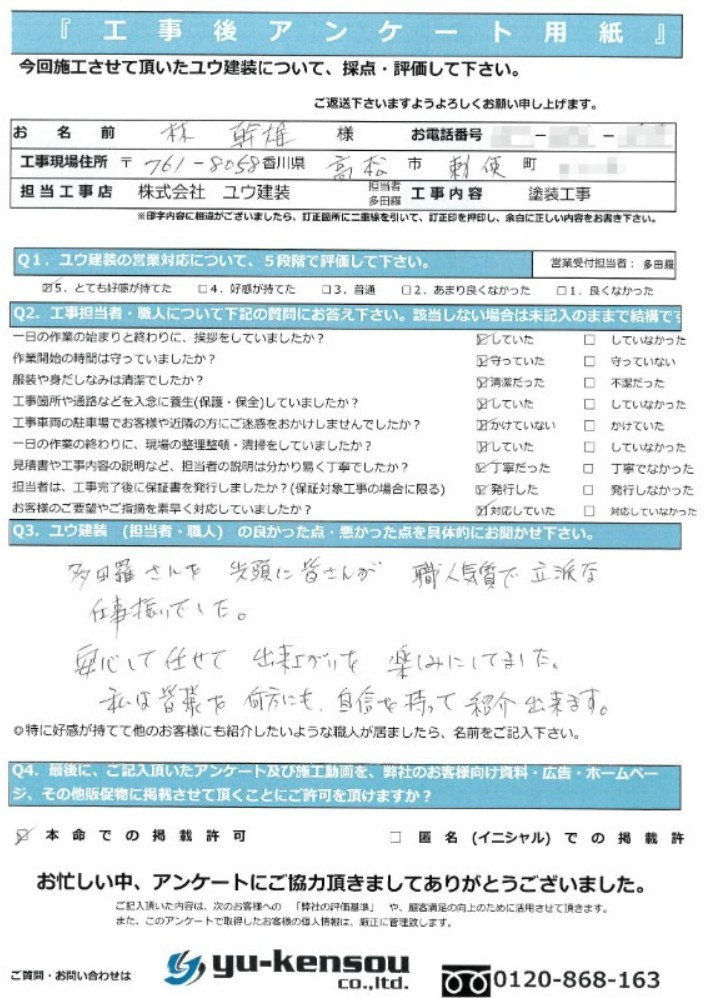 『工事後アンケート用紙』
今回施工させて頂いたユウ建装について、採点・評価して下さい。
ご返送下さいますようよろしくお願い申し上げます。
お名前 林 幹雄 様 お電話番号 － －
工事現場住所 〒761-8058香川県 高松 市 勅使 町
担当工事店 株式会社 ユウ建装 担当者 多田羅 工事内容 塗装工事
※印字内容に相違がございましたら、訂正箇所に二重線を引いて、訂正印を押印し、余白に正しい内容をお書き下さい。
Q1．ユウ建装の営業対応について、5段階で評価して下さい。 営業受付担当者：多田羅
☑5．とても好感が持てた □4．好感が持てた □3．普通 □2．あまり良くなかった □1．良くなかった
Q2．工事担当者・職人について下記の質問にお答え下さい。該当しない場合は未記入のままで結構です
一日の作業の始まりと終わりに、挨拶をしていましたか？ ☑していた □ していなかった
作業開始の時間は守っていましたか？ ☑守っていた □ 守っていない
服装や身だしなみは清潔でしたか？ ☑清潔だった □ 不潔だった
工事箇所や通路などを入念に養生(保護・保全)していましたか？ ☑していた □ していなかった
工事車両の駐車場でお客様や近隣の方にご迷惑をおかけしませんでしたか？ ☑かけていない □ かけていた
一日の作業の終わりに、現場の整理整頓・清掃をしていましたか？ ☑していた □ していなかった
見積書や工事内容の説明など、担当者の説明は分かり易く丁寧でしたか？ ☑丁寧だった □ 丁寧でなかった
担当者は、工事完了後に保証書を発行しましたか？(保証対象工事の場合に限る) ☑発行した □ 発行しなかった
お客様のご要望やご指摘を素早く対応していましたか？ ☑対応していた □ 対応していなかった
Q3．ユウ建装 (担当者・職人) の良かった点・悪かった点を具体的にお聞かせ下さい。
多田羅さんを 先頭に皆さんが 職人気質で立派な
仕事振りでした。
安心して任せて 出来上がりを 楽しみにしてました。
私は皆様を 何方にも、自信を持って紹介出来ます。
◎特に好感が持てて他のお客様にも紹介したいような職人が居ましたら、名前をご記入下さい。
Q4．最後に、ご記入頂いたアンケート及び施工動画を、弊社のお客様向け資料・広告・ホームペー
ジ、その他販促物に掲載させて頂くことにご許可を頂けますか？
☑ 本命での掲載許可 □ 匿名(イニシャル)での掲載許
お忙しい中、アンケートにご協力頂きましてありがとうございました。
ご記入頂いた内容は、次のお客様への 「弊社の評価基準」 や、顧客満足の向上のために活用させて頂きます。
また、このアンケートで取得したお客様の個人情報は、厳正に管理致します。
ご質問・お問い合わせは yu-kensou co.,ltd. 0120-868-163